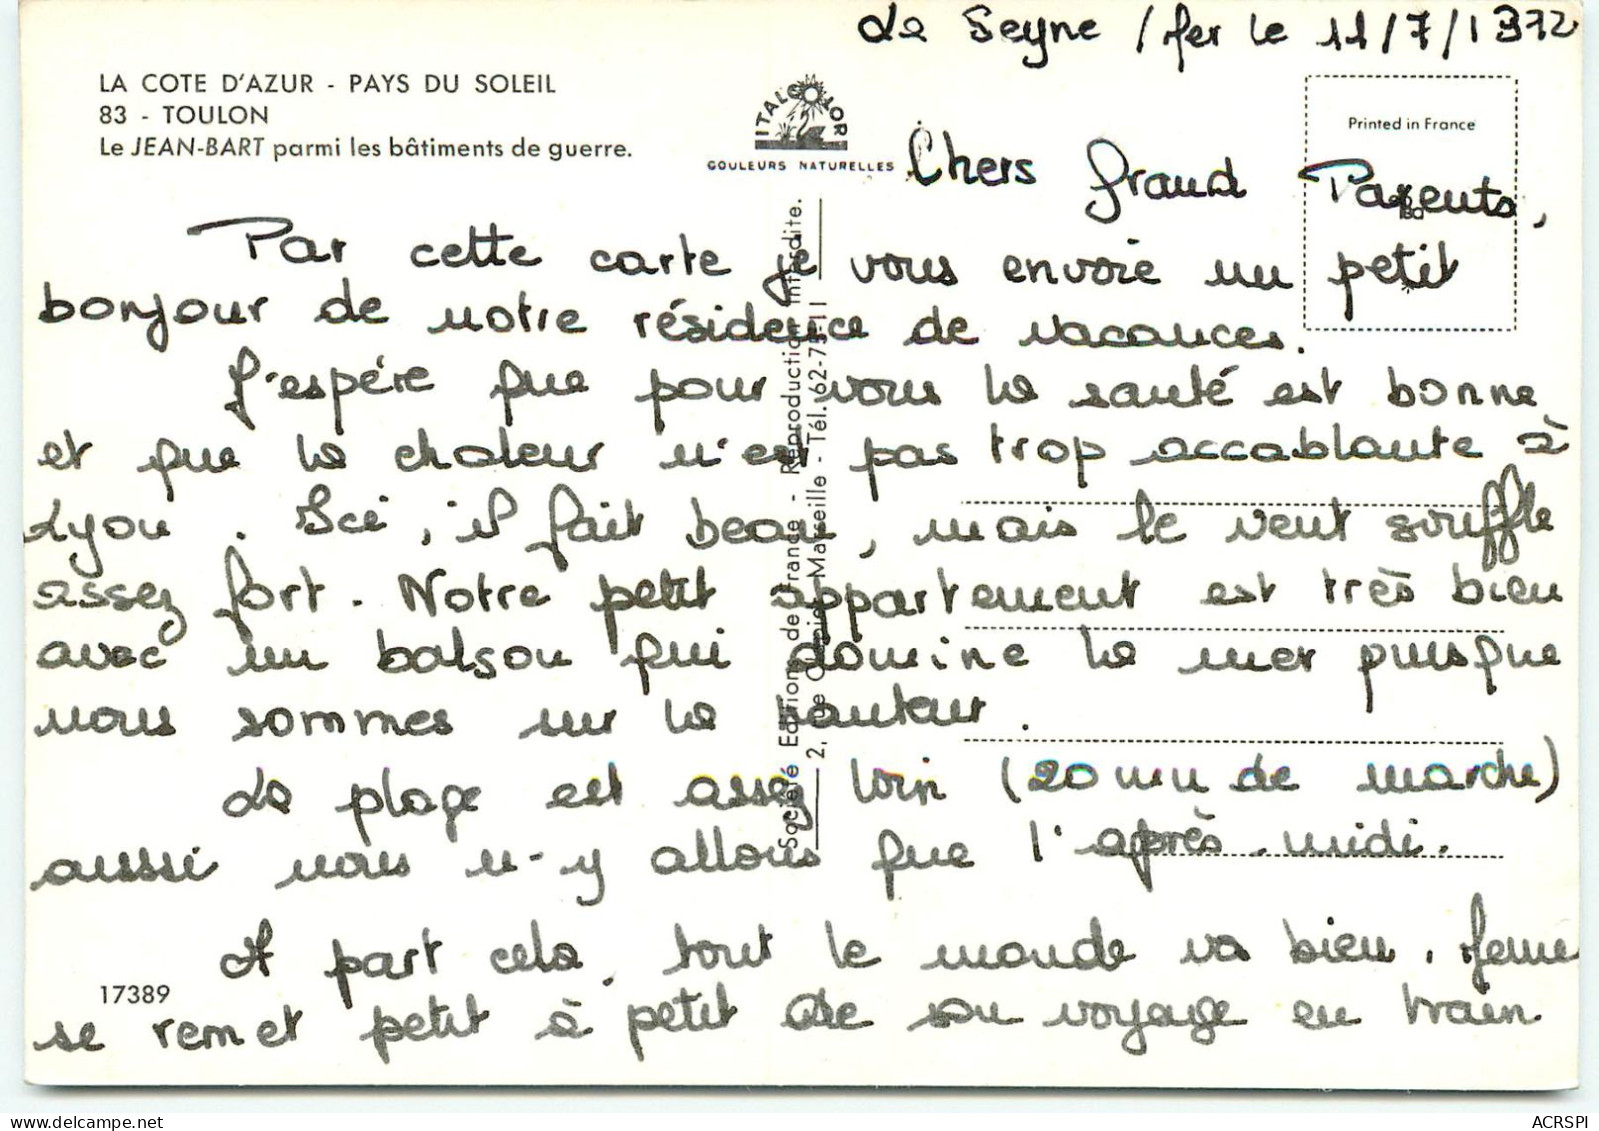 La Seyne / Mer le 11/7/1972
LA COTE D'AZUR - PAYS DU SOLEIL
83 - TOULON
Le JEAN-BART parmi les bâtiments de guerre.
ITALCOLOR
COULEURS NATURELLES
Printed in France
Chers Grand Parents,
Par cette carte je vous envoie un petit
bonjour de notre résidence de vacances.
J'espère que pour vous la santé est bonne
et que la chaleur n'est pas trop accablante à
Lyon. Ici, il fait beau, mais le vent souffle
assez fort. Notre petit appartement est très bien
avec un balson qui domine la mer puisque
nous sommes sur la hauteur.
La plage est assez loin (20 mn de marche)
aussi nous n-y allons que l'après-midi.
A part cela, tout le monde va bien.
se remet petit à petit de son voyage en train
17389
Société Editions de France - Reproduction interdite.
2, rue - Marseille - Tél. 62-75-11
ACRSPI